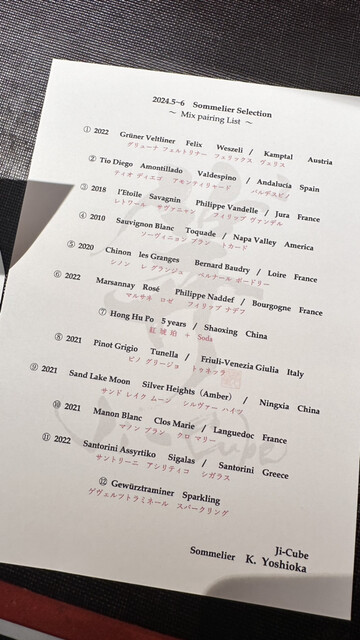 2024.5~6 Sommelier Selection
~ Mix pairing List ~
① 2022 Grüner Veltliner Felix Weszeli / Kamptal Austria
グリューナ フェルトリナー フェリックス ヴェリス
② Tio Diego Amontillado Valdespino / Andalucía Spain
ティオ ディエゴ アモンティリャード バルデスピノ
③ 2018 l'Etoile Savagnin Philippe Vandelle / Jura France
レトワール サヴァニャン フィリップ ヴァンデル
④ 2010 Sauvignon Blanc Toquade / Napa Valley America
ソーヴィニョン ブラン トカード
⑤ 2020 Chinon les Granges Bernard Baudry / Loire France
シノン レ グランジュ ベルナール ボードリー
⑥ 2022 Marsannay Rosé Philippe Naddef / Bourgogne France
マルサネ ロゼ フィリップ ナデフ
⑦ Hong Hu Po 5 years / Shaoxing China
紅 琥珀 + Soda
⑧ 2021 Pinot Grigio Tunella / Friuli-Venezia Giulia Italy
ピノ グリージョ トゥネッラ
⑨ 2021 Sand Lake Moon Silver Heights (Amber) / Ningxia China
サンド レイク ムーン シルヴァー ハイツ
⑩ 2021 Manon Blanc Clos Marie / Languedoc France
マノン ブラン クロ マリー
⑪ 2022 Santorini Assyrtiko Sigalas / Santorini Greece
サントリーニ アシリティコ シガラス
⑫ Gewürztraminer Sparkling
ゲヴェルツトラミネール スパークリング
Ji-Cube
Sommelier K. Yoshioka